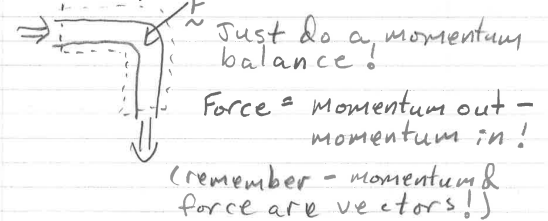 F
~
Just do a momentum
balance!
Force = momentum out -
momentum in!
(remember - momentum &
force are vectors!)